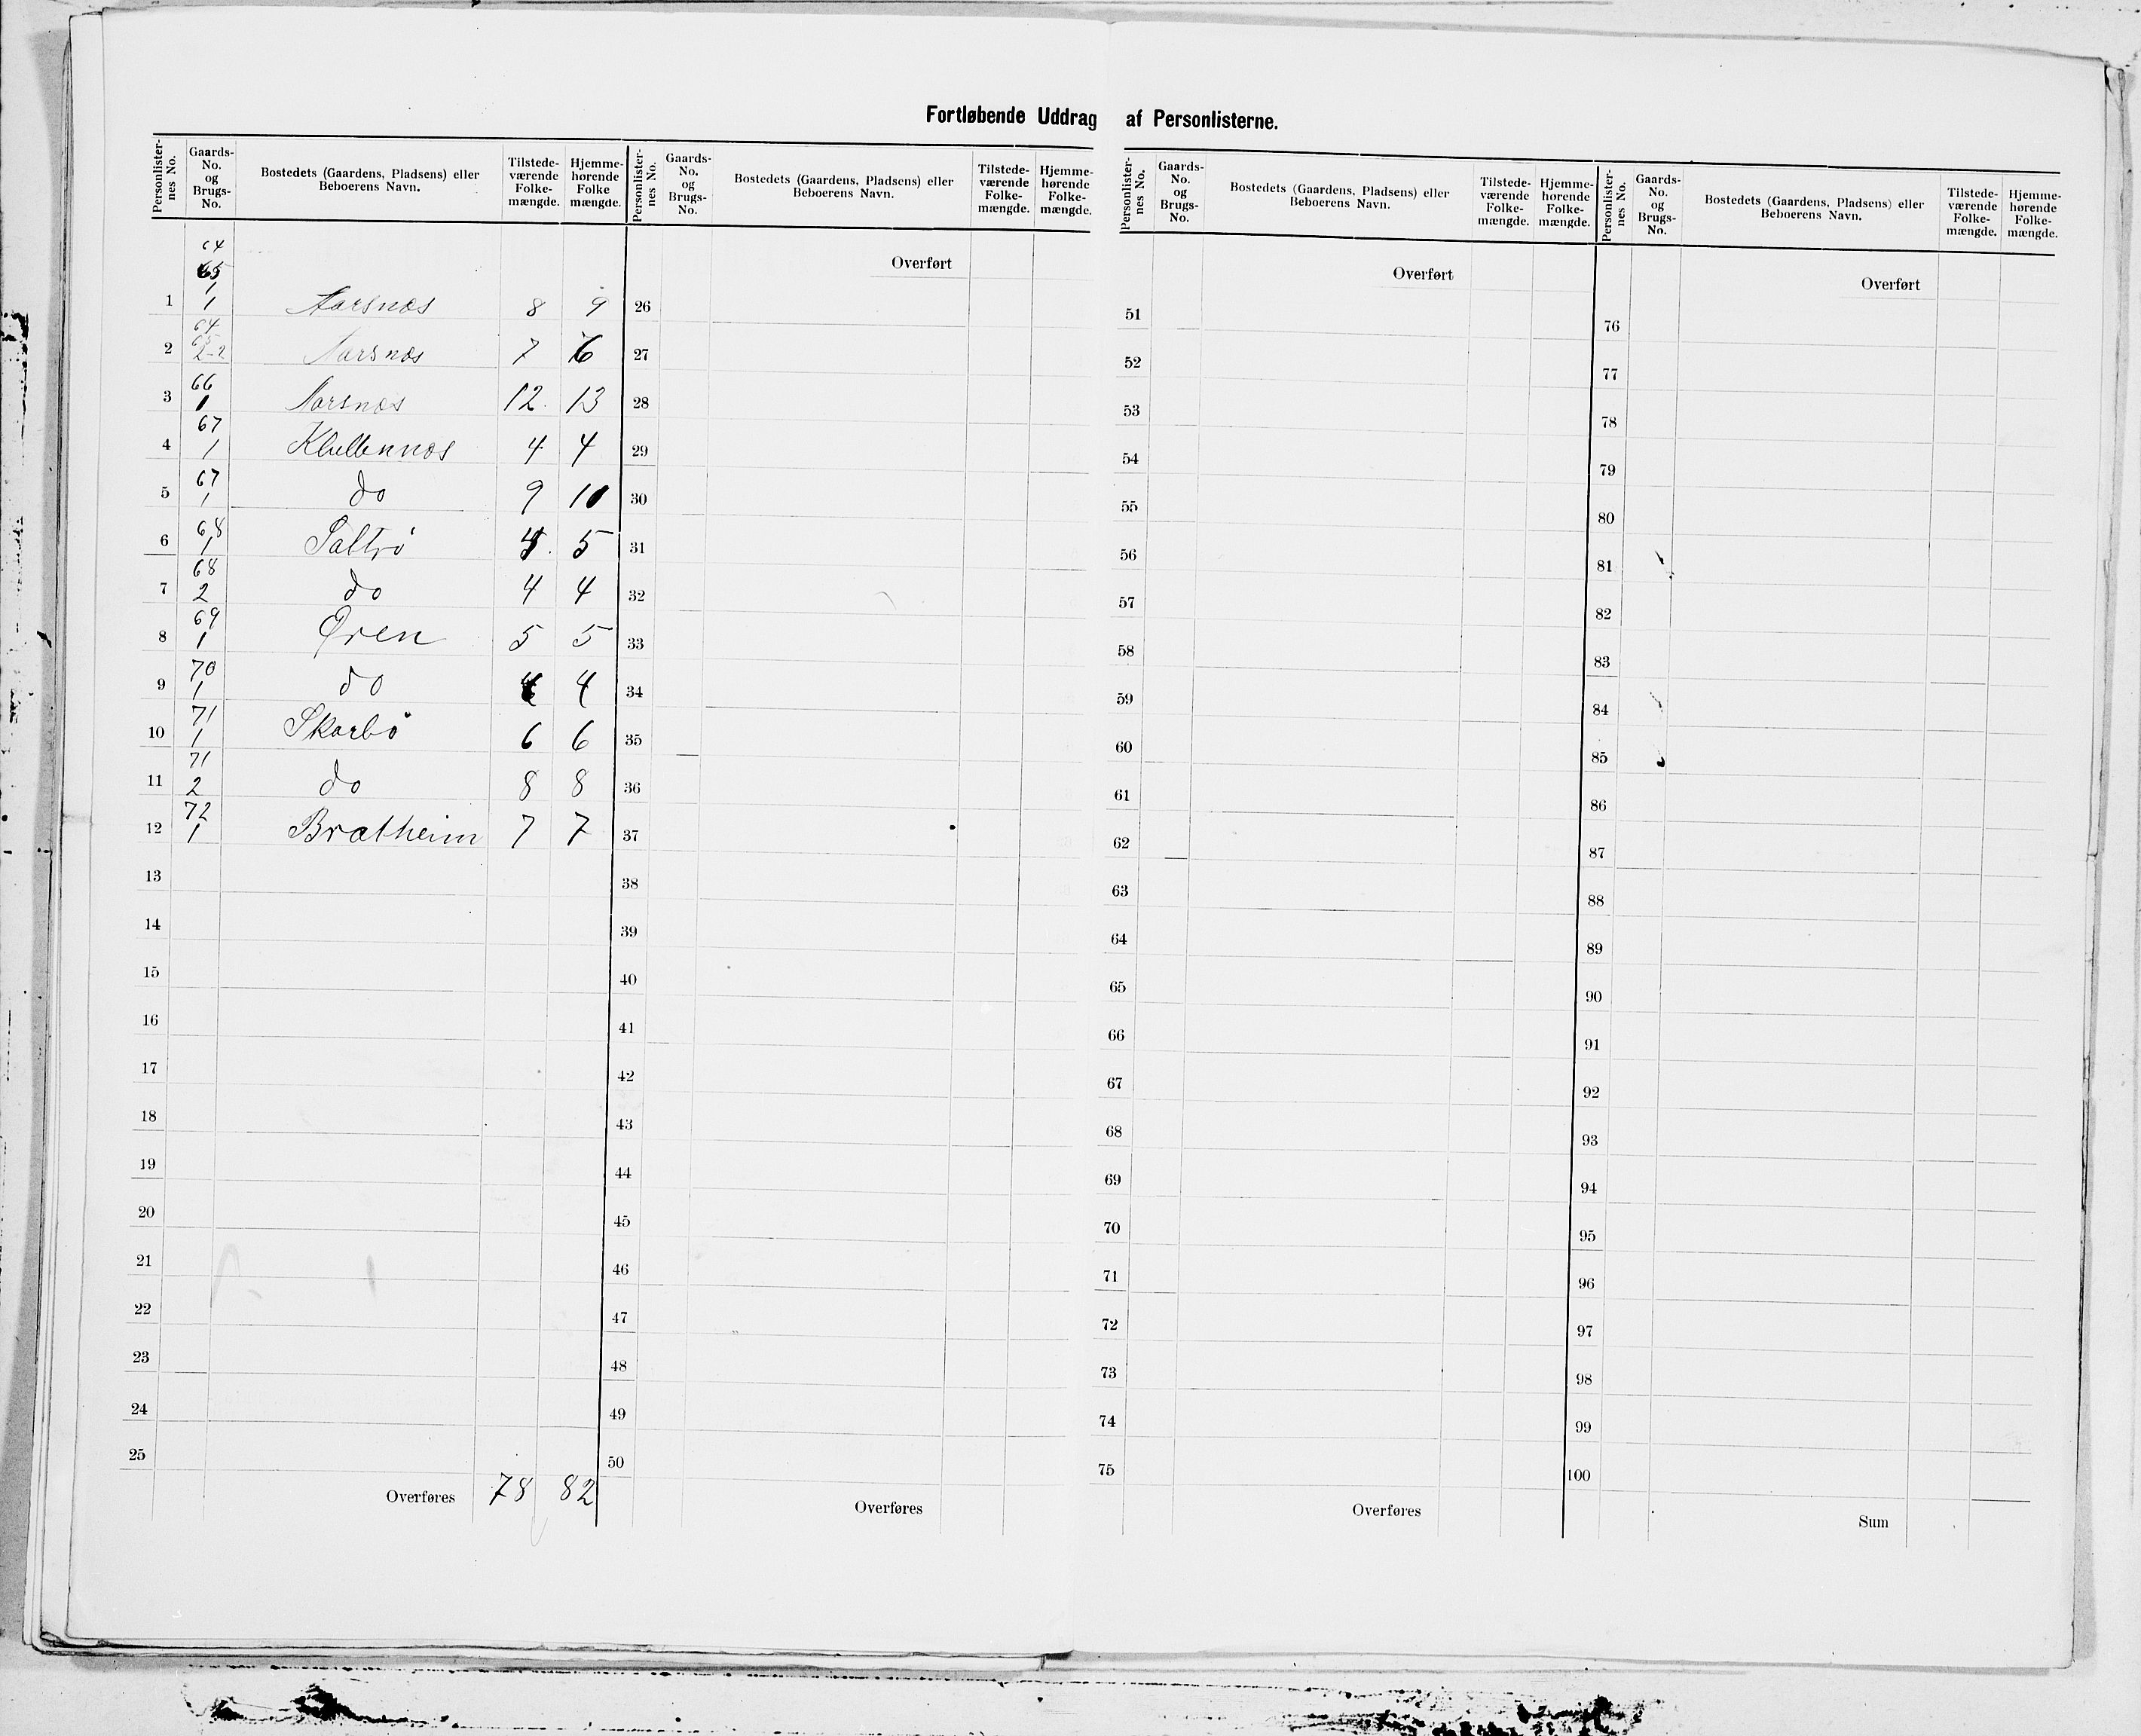 Fortløbende Uddrag af Personlisterne.
Personlister-nes No. Gaards-No. og Brugs-No. Bostedets (Gaardens, Pladsens) eller Beboerens Navn. Tilstede-værende Folke-mængde. Hjemme-hørende Folke mængde.
64
65
1
1 1 Aarsnæs 8 9
64
65
2 2-2 Aarsnæs 7 6
66
3 1 Aarsnæs 12 13
67
4 1 4 4
67
5 1 do 9 10
68
6 1 Saltrö 4 5
68
7 2 do 4 4
69
8 1 Øren 5 5
70
9 1 do 4 4
71
10 1 Skorbö 6 6
71
11 2 do 8 8
72
12 1 Bratheim 7 7
13
14
15
16
17
18
19
20
21
22
23
24
25
Overføres 78 82
Personlister-nes No. Gaards-No. og Brugs-No. Bostedets (Gaardens, Pladsens) eller Beboerens Navn. Tilstede-værende Folke-mængde. Hjemme-hørende Folke-mængde.
Overført
26
27
28
29
30
31
32
33
34
35
36
37
38
39
40
41
42
43
44
45
46
47
48
49
50
Overføres
Personlister-nes No. Gaards-No. og Brugs-No. Bostedets (Gaardens, Pladsens) eller Beboerens Navn. Tilstede-værende Folke-mængde. Hjemme-hørende Folke-mængde.
Overført
51
52
53
54
55
56
57
58
59
60
61
62
63
64
65
66
67
68
69
70
71
72
73
74
75
Overføres
Personlister-nes No. Gaards-No. og Brugs-No. Bostedets (Gaardens, Pladsens) eller Beboerens Navn. Tilstede-værende Folke-mængde. Hjemme-hørende Folke-mængde.
Overført
76
77
78
79
80
81
82
83
84
85
86
87
88
89
90
91
92
93
94
95
96
97
98
99
100
Sum